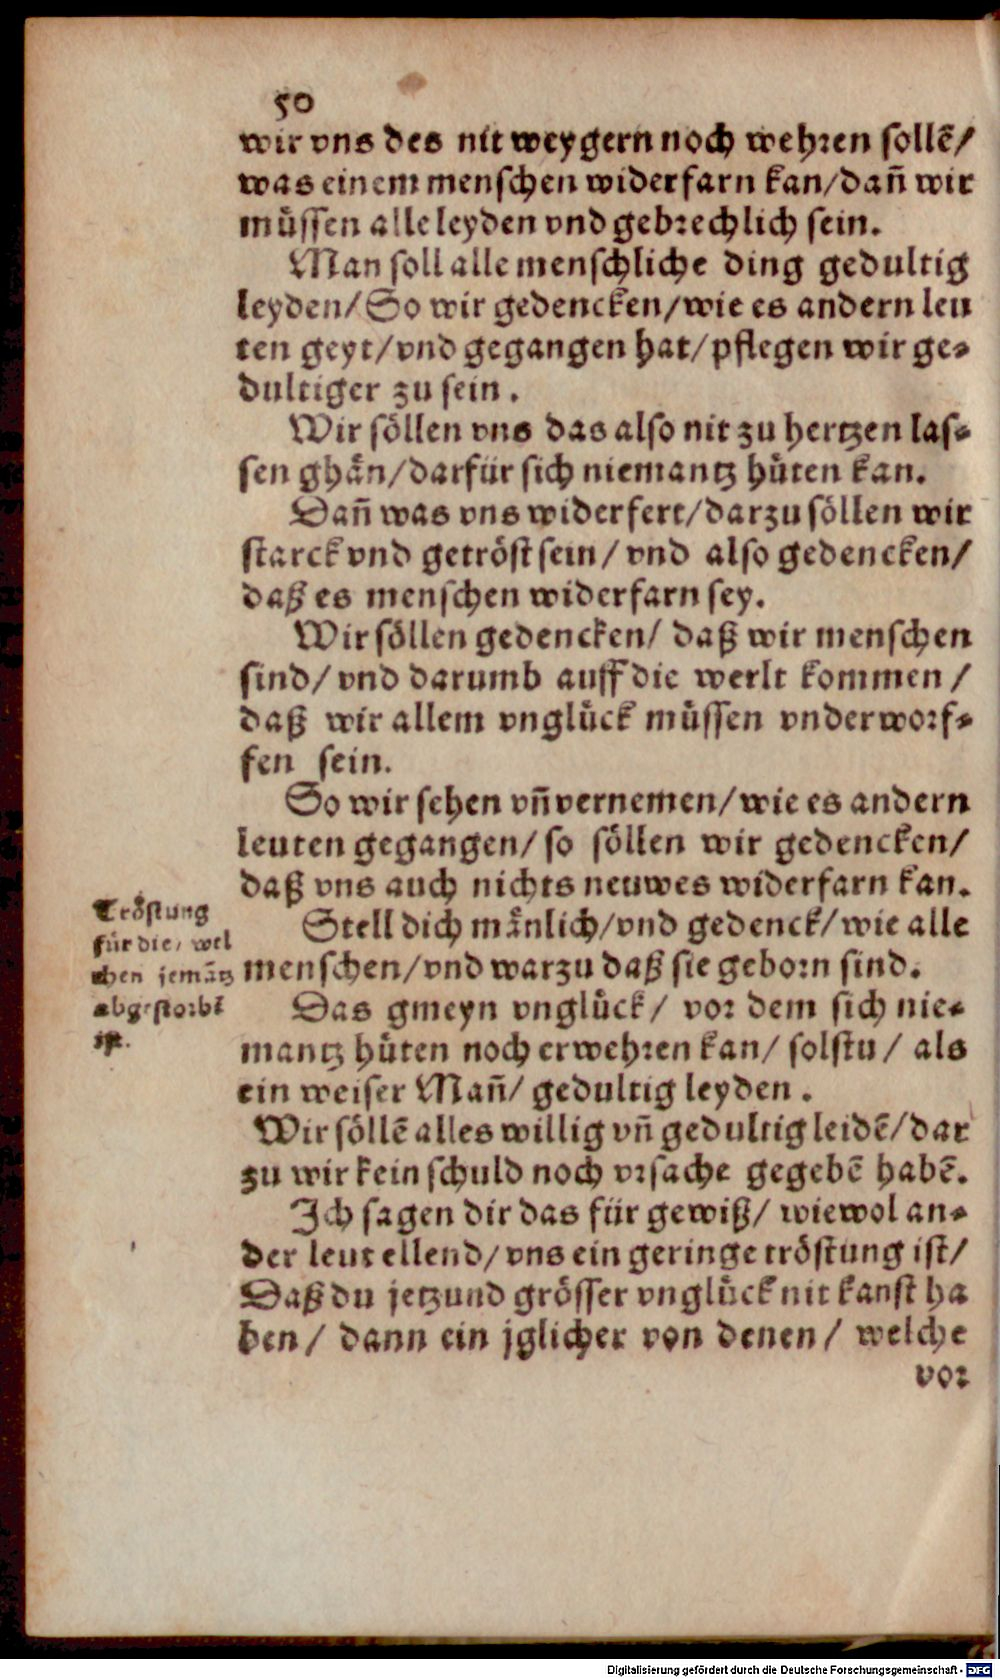 50
wir vns des nit weygern noch wehren sollē/
was einem menschen widerfarn kan/dañ wir
müssen alle leyden vnd gebrechlich sein.
Man soll alle menschliche ding gedultig
leyden/So wir gedencken/wie es andern leu
ten geyt/vnd gegangen hat/pflegen wir ge-
dultiger zu sein.
Wir söllen vns das also nit zu hertzen las-
sen ghän/darfür sich niemantz hüten kan.
Dañ was vns widerfert/darzu söllen wir
starck vnd getröst sein/ vnd also gedencken/
daß es menschen widerfarn sey.
Wir söllen gedencken/ daß wir menschen
sind/vnd darumb auff die werlt kommen/
daß wir allem vnglück müssen vnderworf-
fen sein.
So wir sehen vñ vernemen/wie es andern
leuten gegangen/so söllen wir gedencken/
daß vns auch nichts neuwes widerfarn kan.
Tröstung
für die/ wel
chen jemātz
abgestorbē
ist.
Stell dich mänlich/vnd gedenck/wie alle
menschen/vnd warzu daß sie geborn sind.
Das gmeyn vnglück/ vor dem sich nie-
mantz hüten noch erwehren kan/ solstu/ als
ein weiser Mañ/ gedultig leyden.
Wir söllē alles willig vñ gedultig leidē/dar
zu wir kein schuld noch vrsache gegebē habē.
Ich sagen dir das für gewiß/ wiewol an-
der leut ellend/vns ein geringe tröstung ist/
Daß du jetzund grösser vnglück nit kanst ha
ben/ dann ein jglicher von denen/ welche
vor
Digitalisierung gefördert durch die Deutsche Forschungsgemeinschaft - DFG